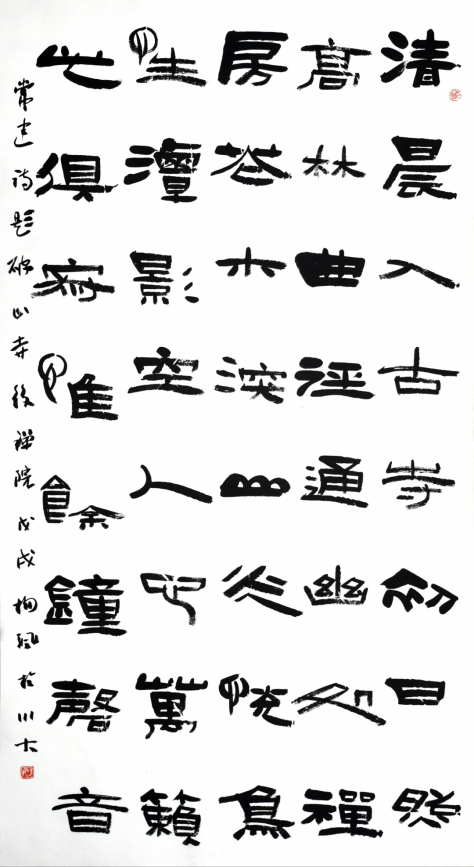 清晨入古寺初日照
高林曲徑通幽処禪
房花木深山光悅鳥
性潭影空人心萬籟
此俱寂惟餘鐘磬音
常建詩題破山寺後禪院戊戌於川大